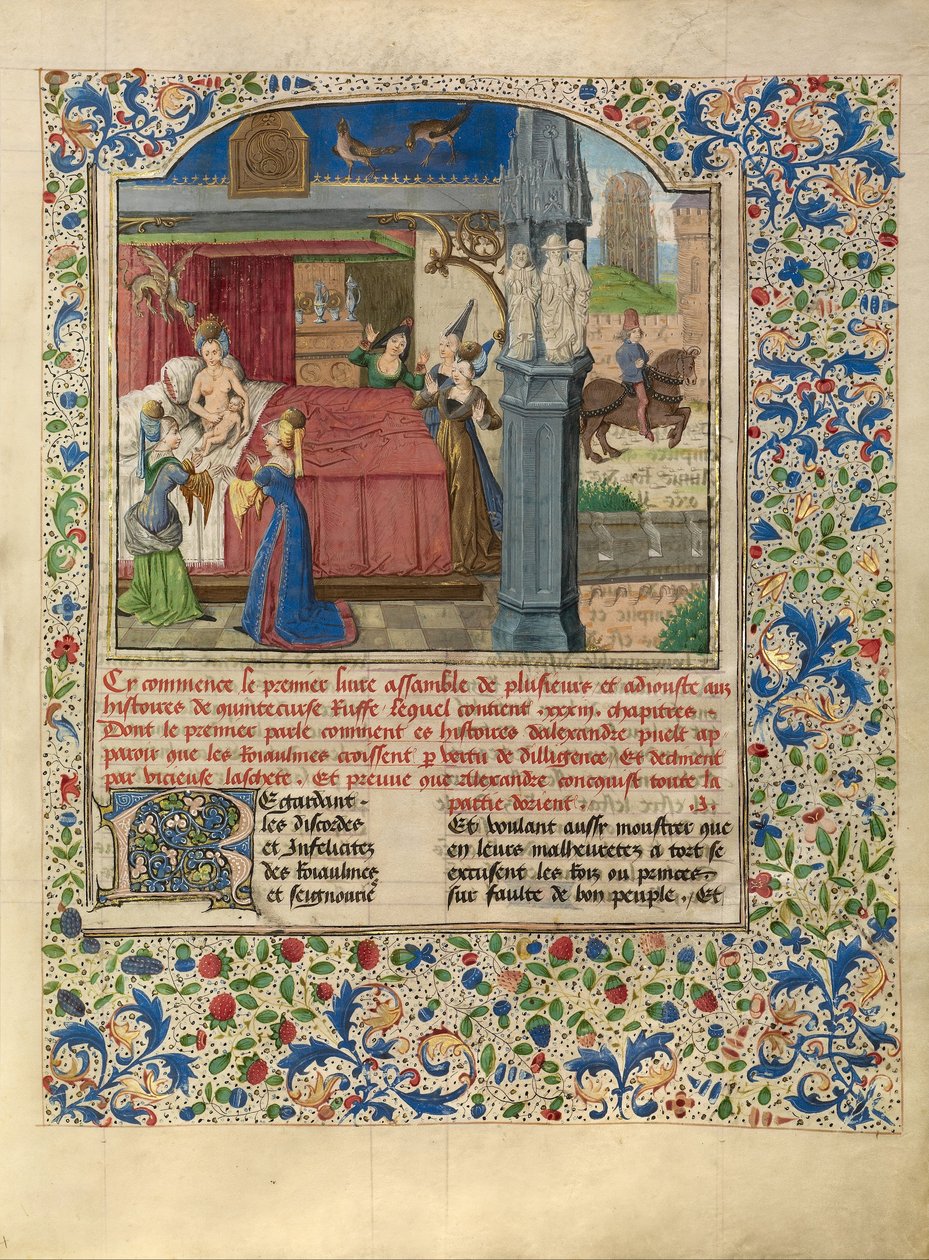 Cy commence le premier liure assamble de plusieurs et adiouste aux
histoires de quintecurse Ruffe / lequel contient .xxxiii. chapitres .
Dont le premier parle comment es histoires dalexandre puelt ap
paroir que les Roiaulmes croissent p vertu de dilligence / Et declinent
par vicieuse laschete . Et preuue que Alexandre concquist toute la
partie dorient .
Regardant
les discordes
et Infelicitez
des Roiaulmes
et seignourie
Et voulant aussy monstrer que
en leurs malheuretez a tort se
excusent les Roiz ou princes
sur faulte de bon peuple . / Et